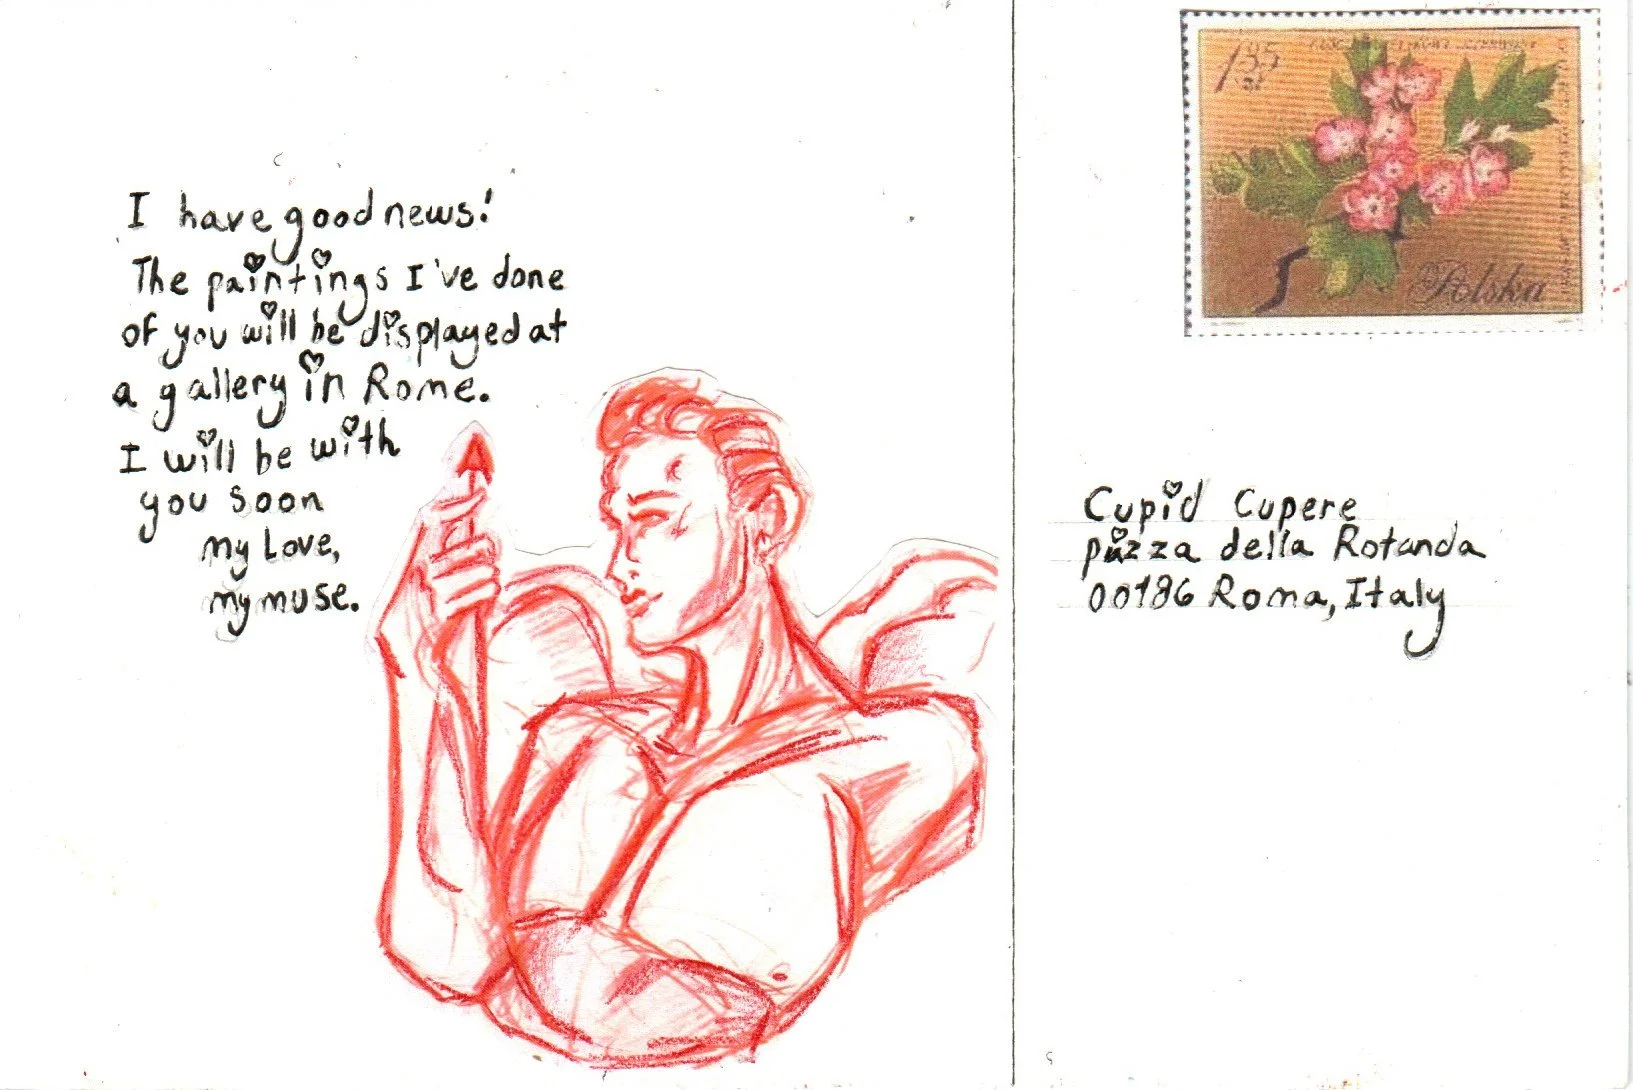 I have good news!
The paintings I've done
of you will be displayed at
a gallery in Rome.
I will be with
you soon
my Love,
my muse.
1,35
zł
Polska
Cupid Cupere
piazza della Rotanda
00186 Roma, Italy